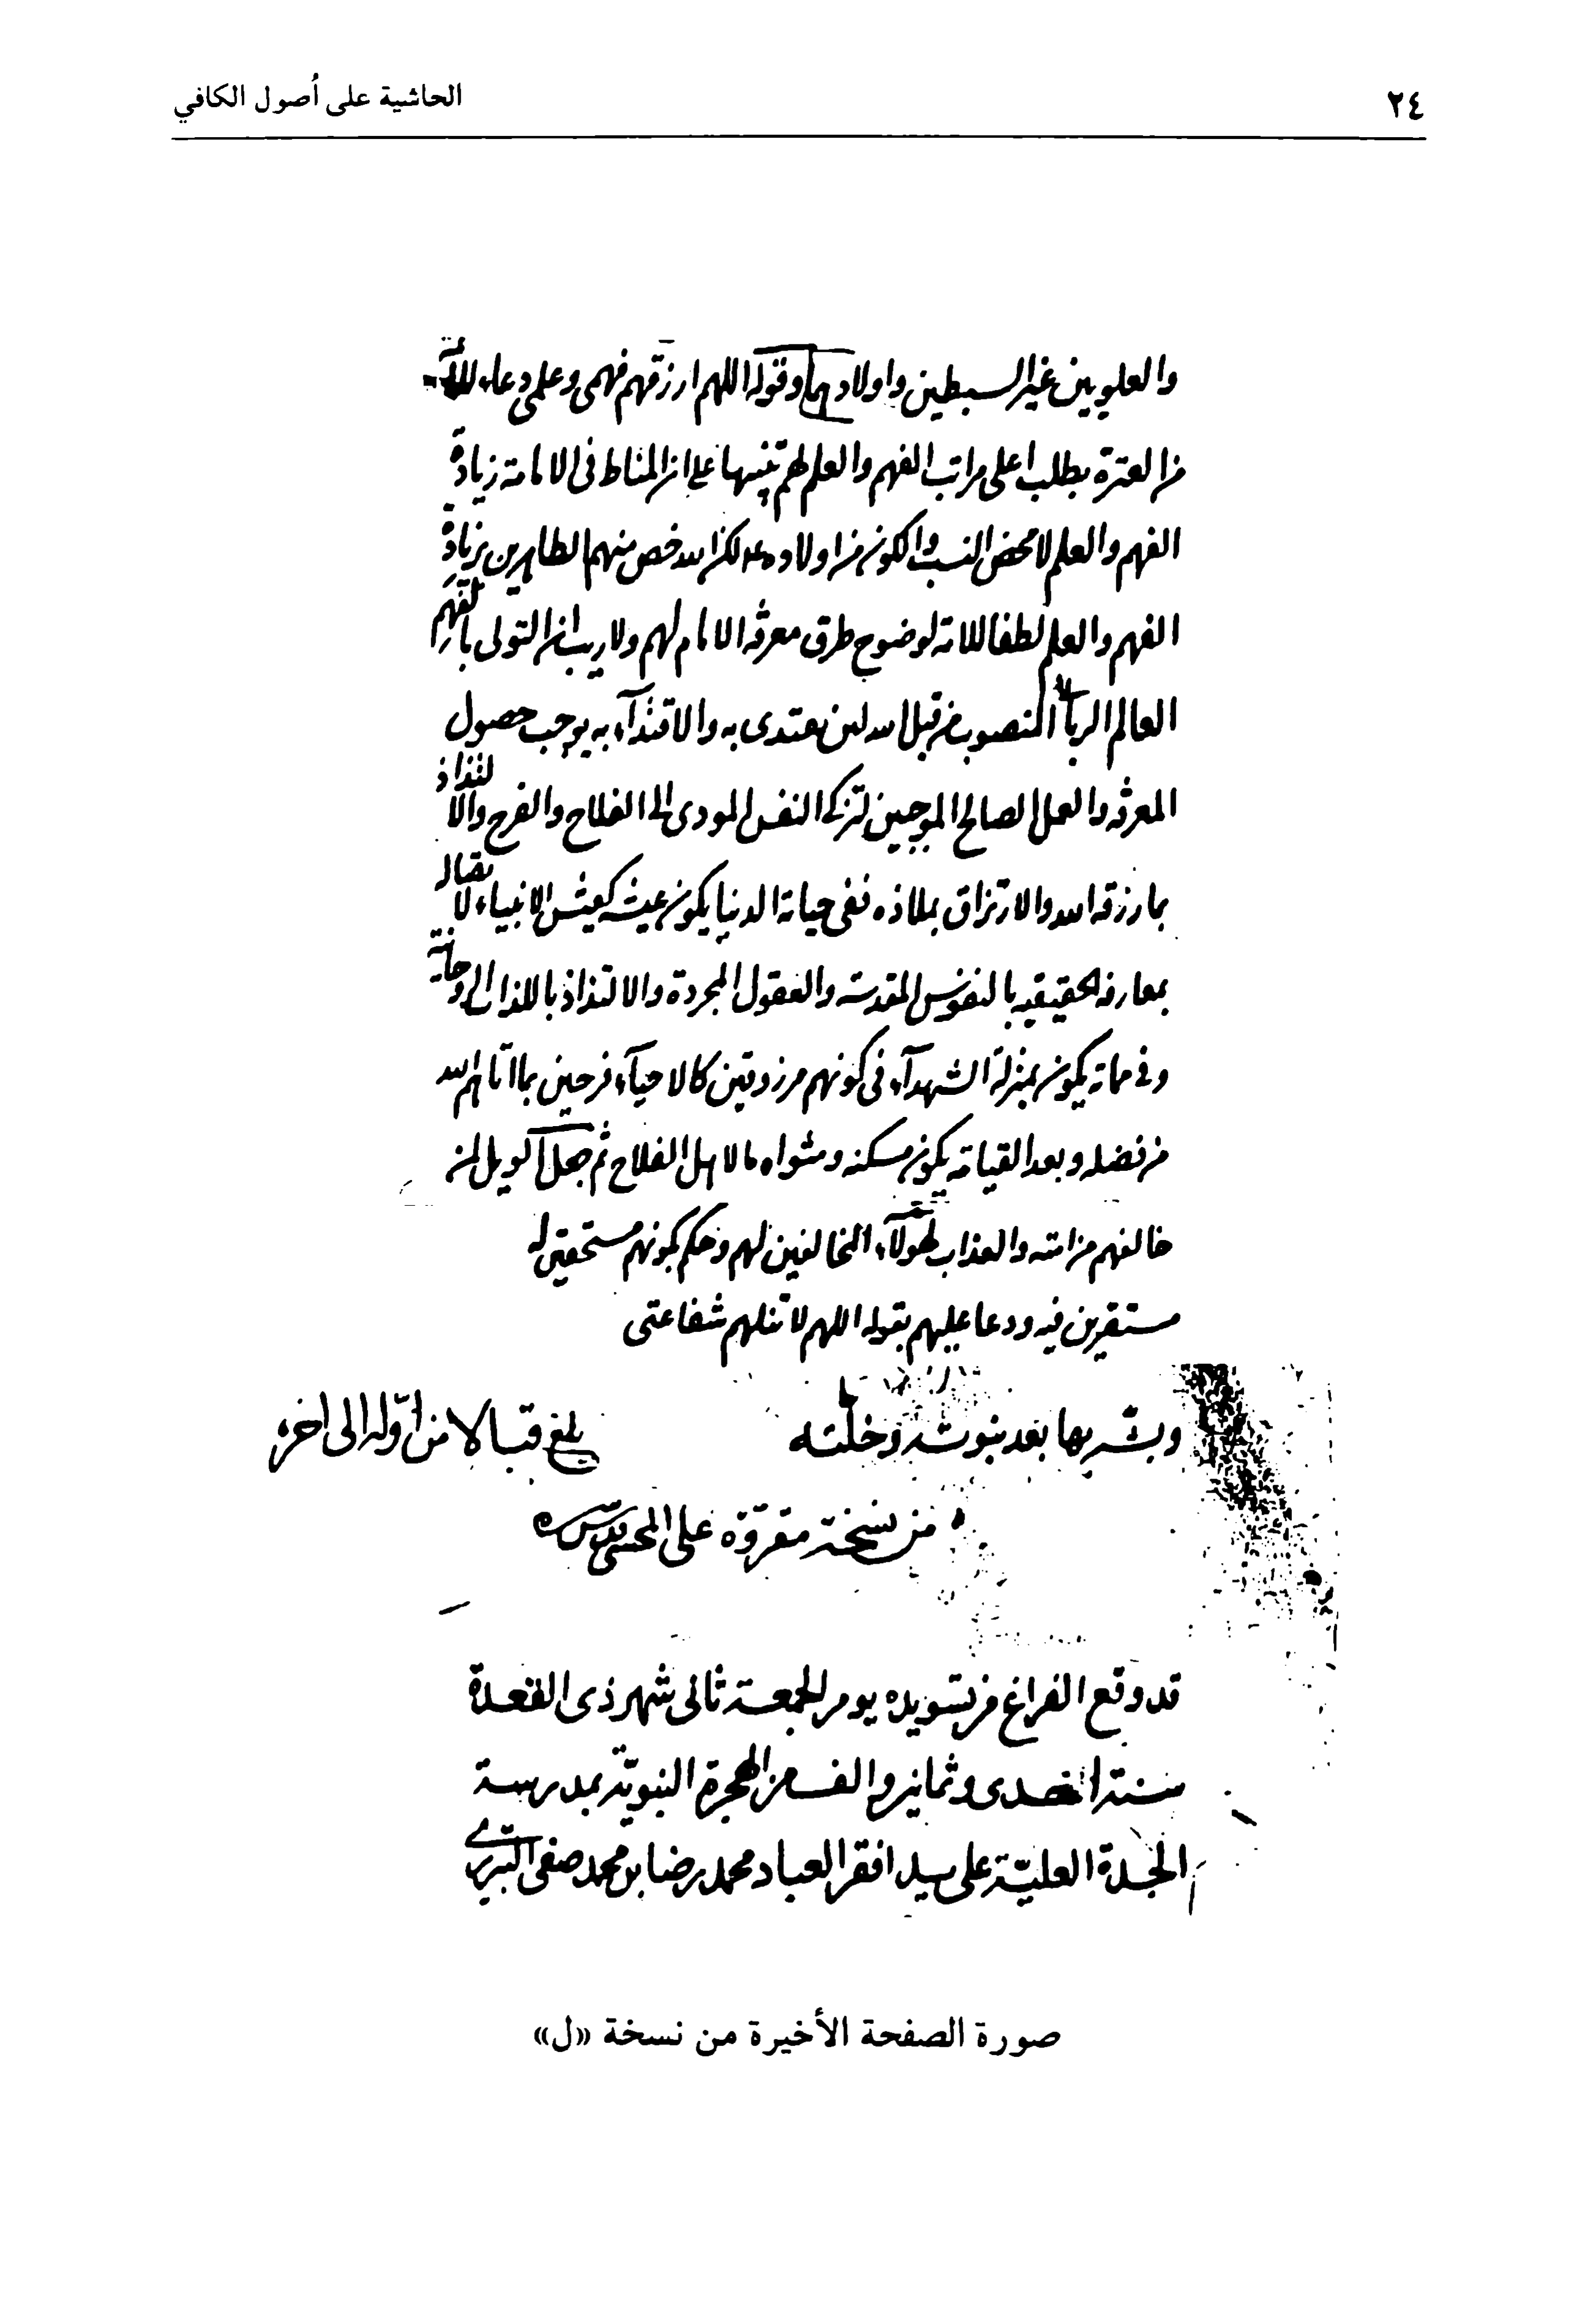 ٢٤
الحاشية على أصول الكافي
والعلويين غير السبطين واولادهما وقوله اللهم ارزقهم فهمى وعلمى دعاء للائمة
من العترة بطلب اعلى مراتب الفهم والعلم لهم تنبيها على ان المناط فى الامامة زيادة
الفهم والعلم لا محض النسب والكون من اولاده لكن الله خص منهم الطاهرين بزيادة
الفهم والعلم لطفا للامة لوضوح طرق معرفة الامام لهم ولا ريب ان التولى بالفهم
العالم الربانى المنصوب من قبل الله لمن يقتدى به والاقتدآء به يوجب حصول
المعرفة والعمل الصالح الموجبين لتزكى النفس المودى الى الفلاح والفرح والالتذاذ
بما رزقه الله والارتزاق بملاذه ففى حياته الدنيا يكون عيشه كعيش الانبياء لاتصاله
بمعارفه الحقيقيه بالنفوس المقدسة والعقول المجردة والالتذاذ باللذات الروحانية
وفى مماته يكون بمنزلة الشهدآء فى كونهم مرزوقين كالاحيآء فرحين بما اتاهم الله
من فضله وبعد القيامة يكون مسكنه ومثواه ما لاهل الفلاح ثم جعل الويل لمن
خالفهم من امته والعذاب لهولآء المخالفين لهم وحكم بكونهم مستحقين له
مستقرين فيه ودعا عليهم بقوله اللهم لا تنلهم شفاعتى
وبشر بها بعد نبوته وخلته
بلغ قبالا من اوّله الى اخره
من نسخة مقروّة على المحشى قدس سره
قد وقع الفراغ من تسويده يوم الجمعة ثانى شهر ذى القعدة
سنة احدى وثمانين والف من الهجرة النبويّة بمدرسة
الجدة العليّة على يد افقر العباد محمد رضا بن محمد صفى التبريزى
صورة الصفحة الأخيرة من نسخة «ل»